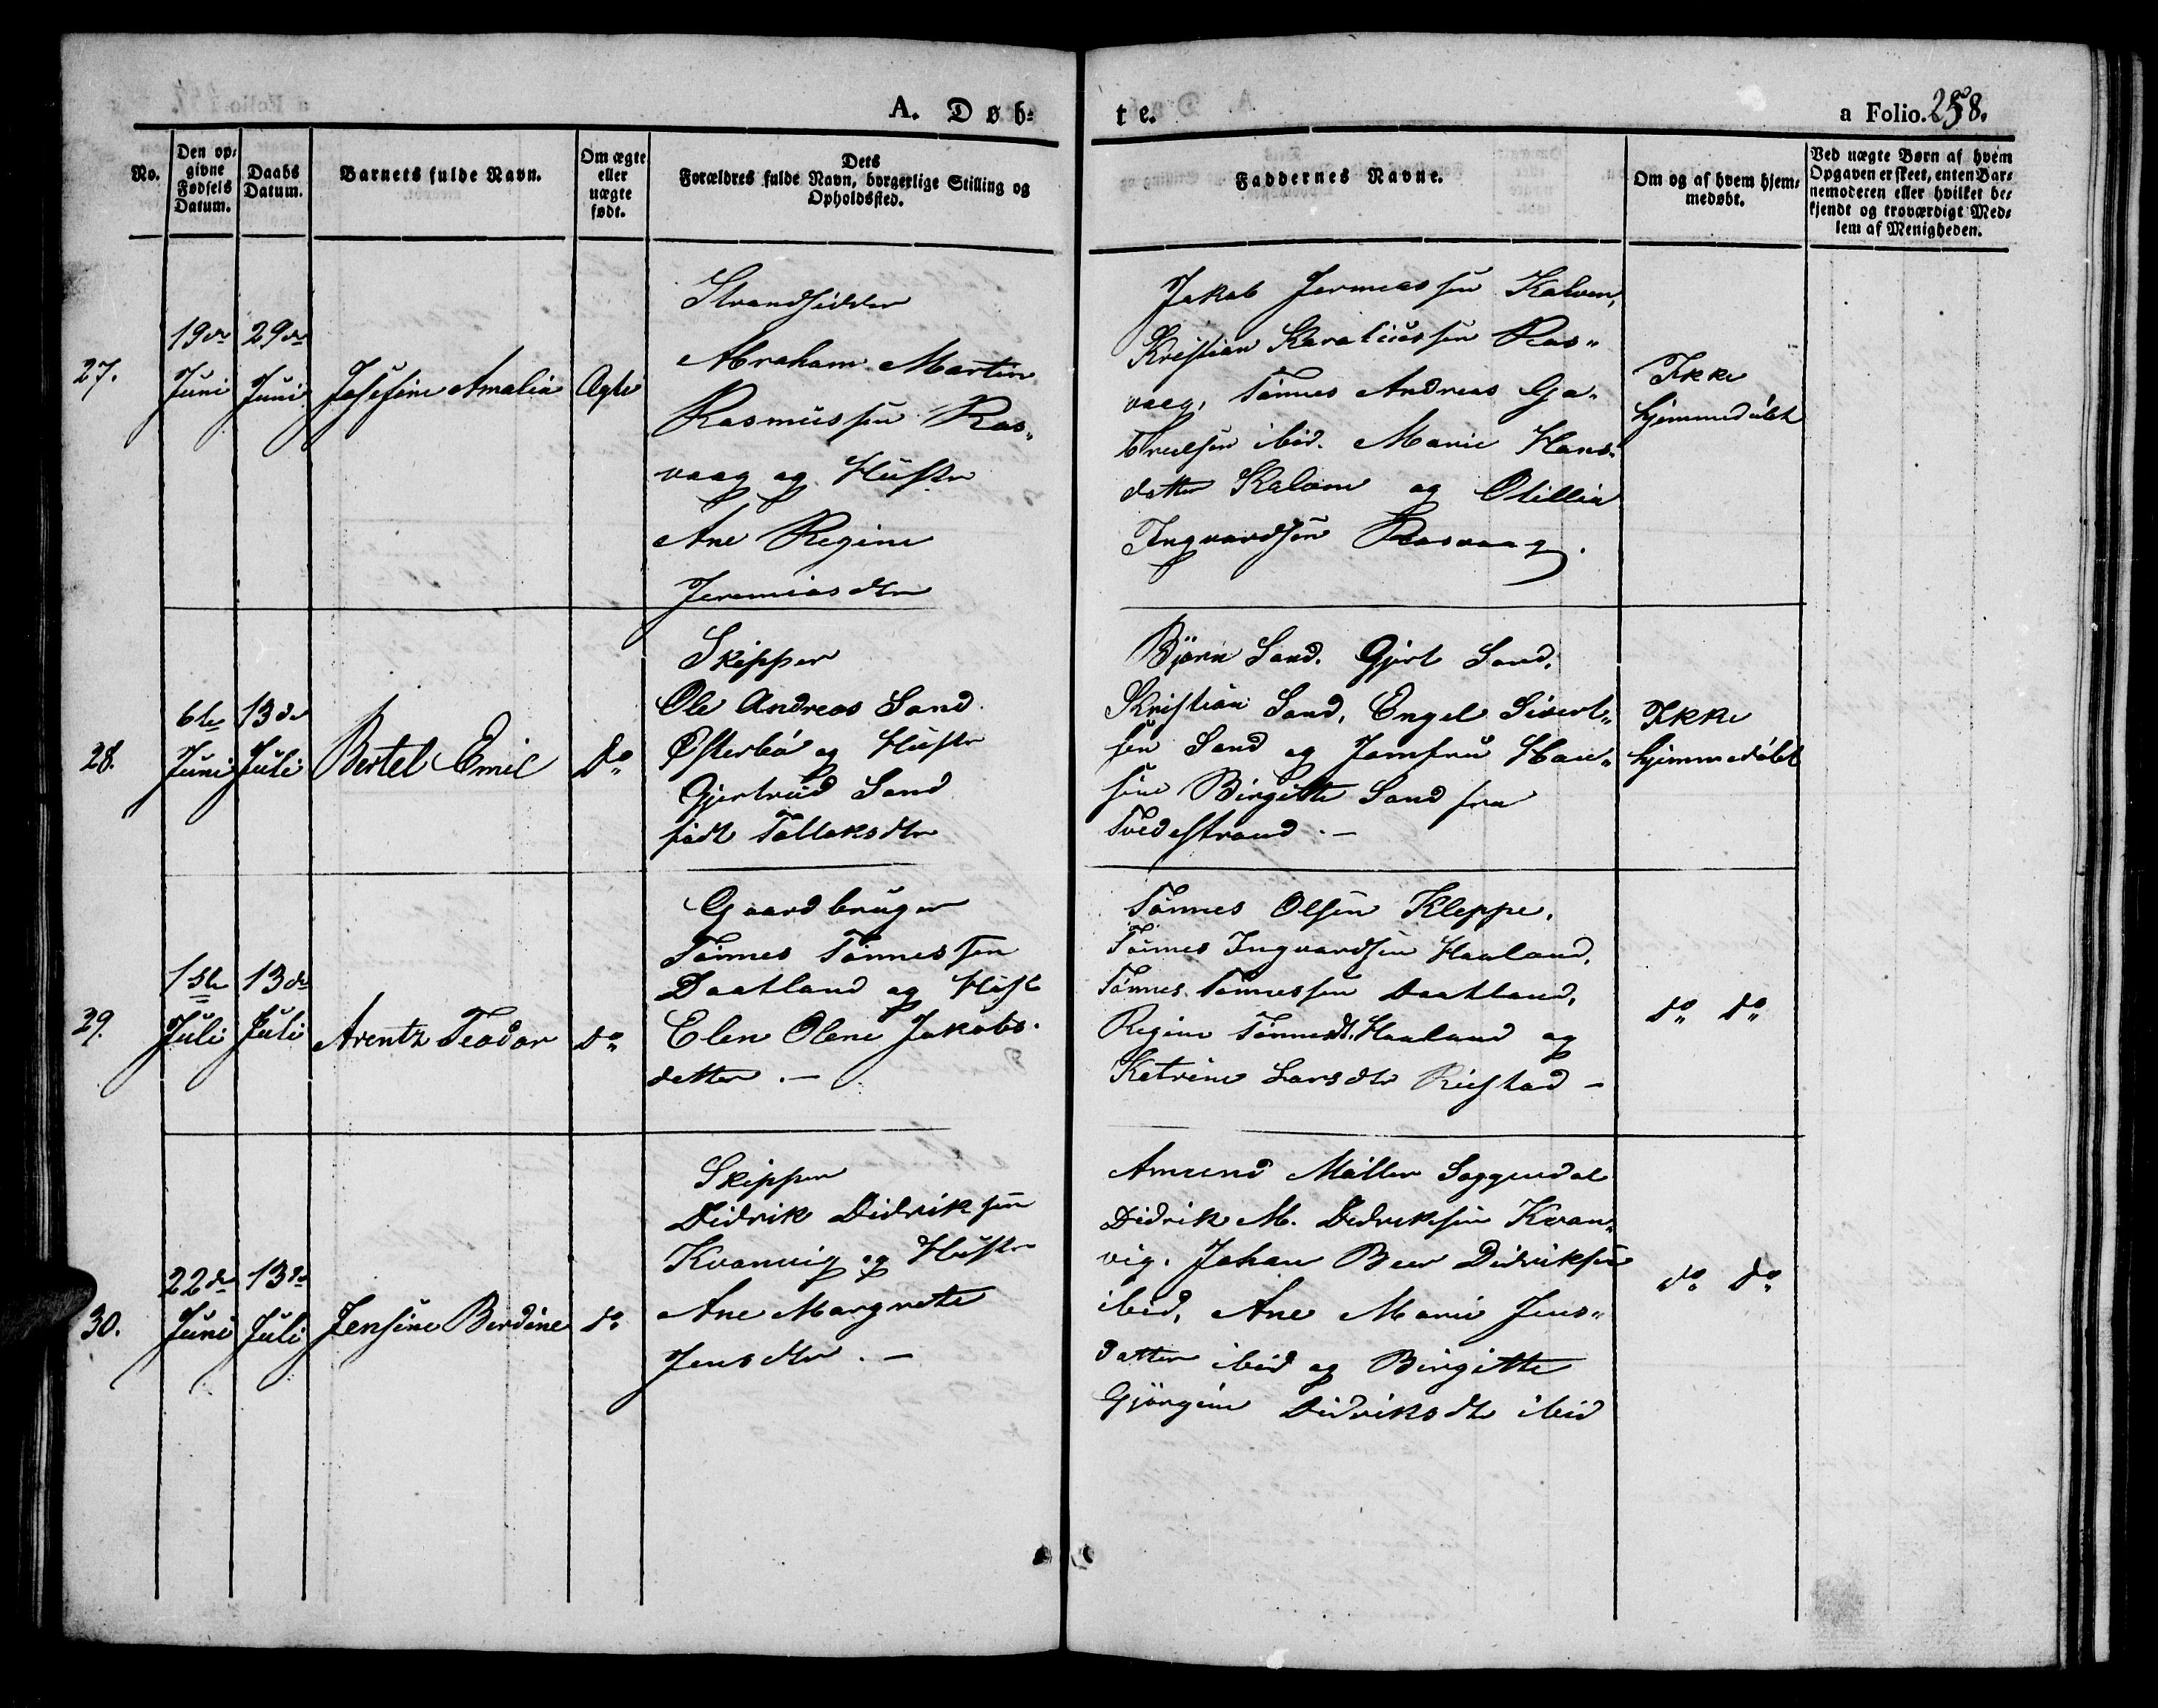 A. Døb-
te.
a Folio. 258.
No.
Den op-
givne
Fødsels
Datum.
Daabs
Datum.
Barnets fulde Navn.
Om ægte
eller
uægte
født.
Dets
Forældres fulde Navn, borgerlige Stilling og
Opholdssted.
Faddernes Navne.
Om og af hvem hjem-
medøbt.
Ved uægte Børn af hvem
Opgaven er skeet, enten Bar-
nemoderen eller hvilket be-
kjendt og troværdigt Med-
lem af Menigheden.
27.
19de
Juni
29de
Juni
Josefine Amalia
Ægte
Strandsidder
Abraham Martin
Rasmussen Ras„
vaag og Hustr
Ane Regine
Jeremiasdtr
Jakob Jermiassen Kalven,
Kristian Karaliussen Ras„
vaag, Tønnes Andreas Ga„
brielsen ibid. Marie Hans„
datter Kalven og Otillia
Ingvardsen Rasvaag.
Ikke
hjemmedøbt
28.
6te
Juni
13de
Juli
Bertel Emil
do
Skipper
Ole Andreas Sand
Østerbø og Hustr
Gjertrud Sand
født Tollaksdtr
Bjørn Sand. Gjert Sand,
Kristian Sand, Engel Sivert„
sen Sand og Jomfru Han„
sine Birgitte Sand fra
Tvedestrand. —
Ikke
hjemmedøbt
29.
1ste
Juli
13de
Juli
Arentz Teodor
do
Gaardbruger
Tønnes Tønnessen
Daatland og Hust
Elen Olene Jakobs-
datter. —
Tønnes Olsen Kleppe,
Tønnes Ingvardsen Haaland,
Tønnes Tønnessen Daatland,
Regine Tønnesdt. Haaland og
Katrine Larsdtr Riestad —
do do
30.
22de
Juni
13de
Juli
Jensine Berdine
do
Skipper
Didrik Didriksen
Kvanvig og Hustr
Ane Margrete
Jensdtr. —
Amund Møller Soggendal
Didrik M. Didriksen Kvan„
vig. Johan Beer Didriksen
ibid, Ane Marie Jens„
datter ibid og Birgitte
Gjørgine Didriksdtr ibid
do do